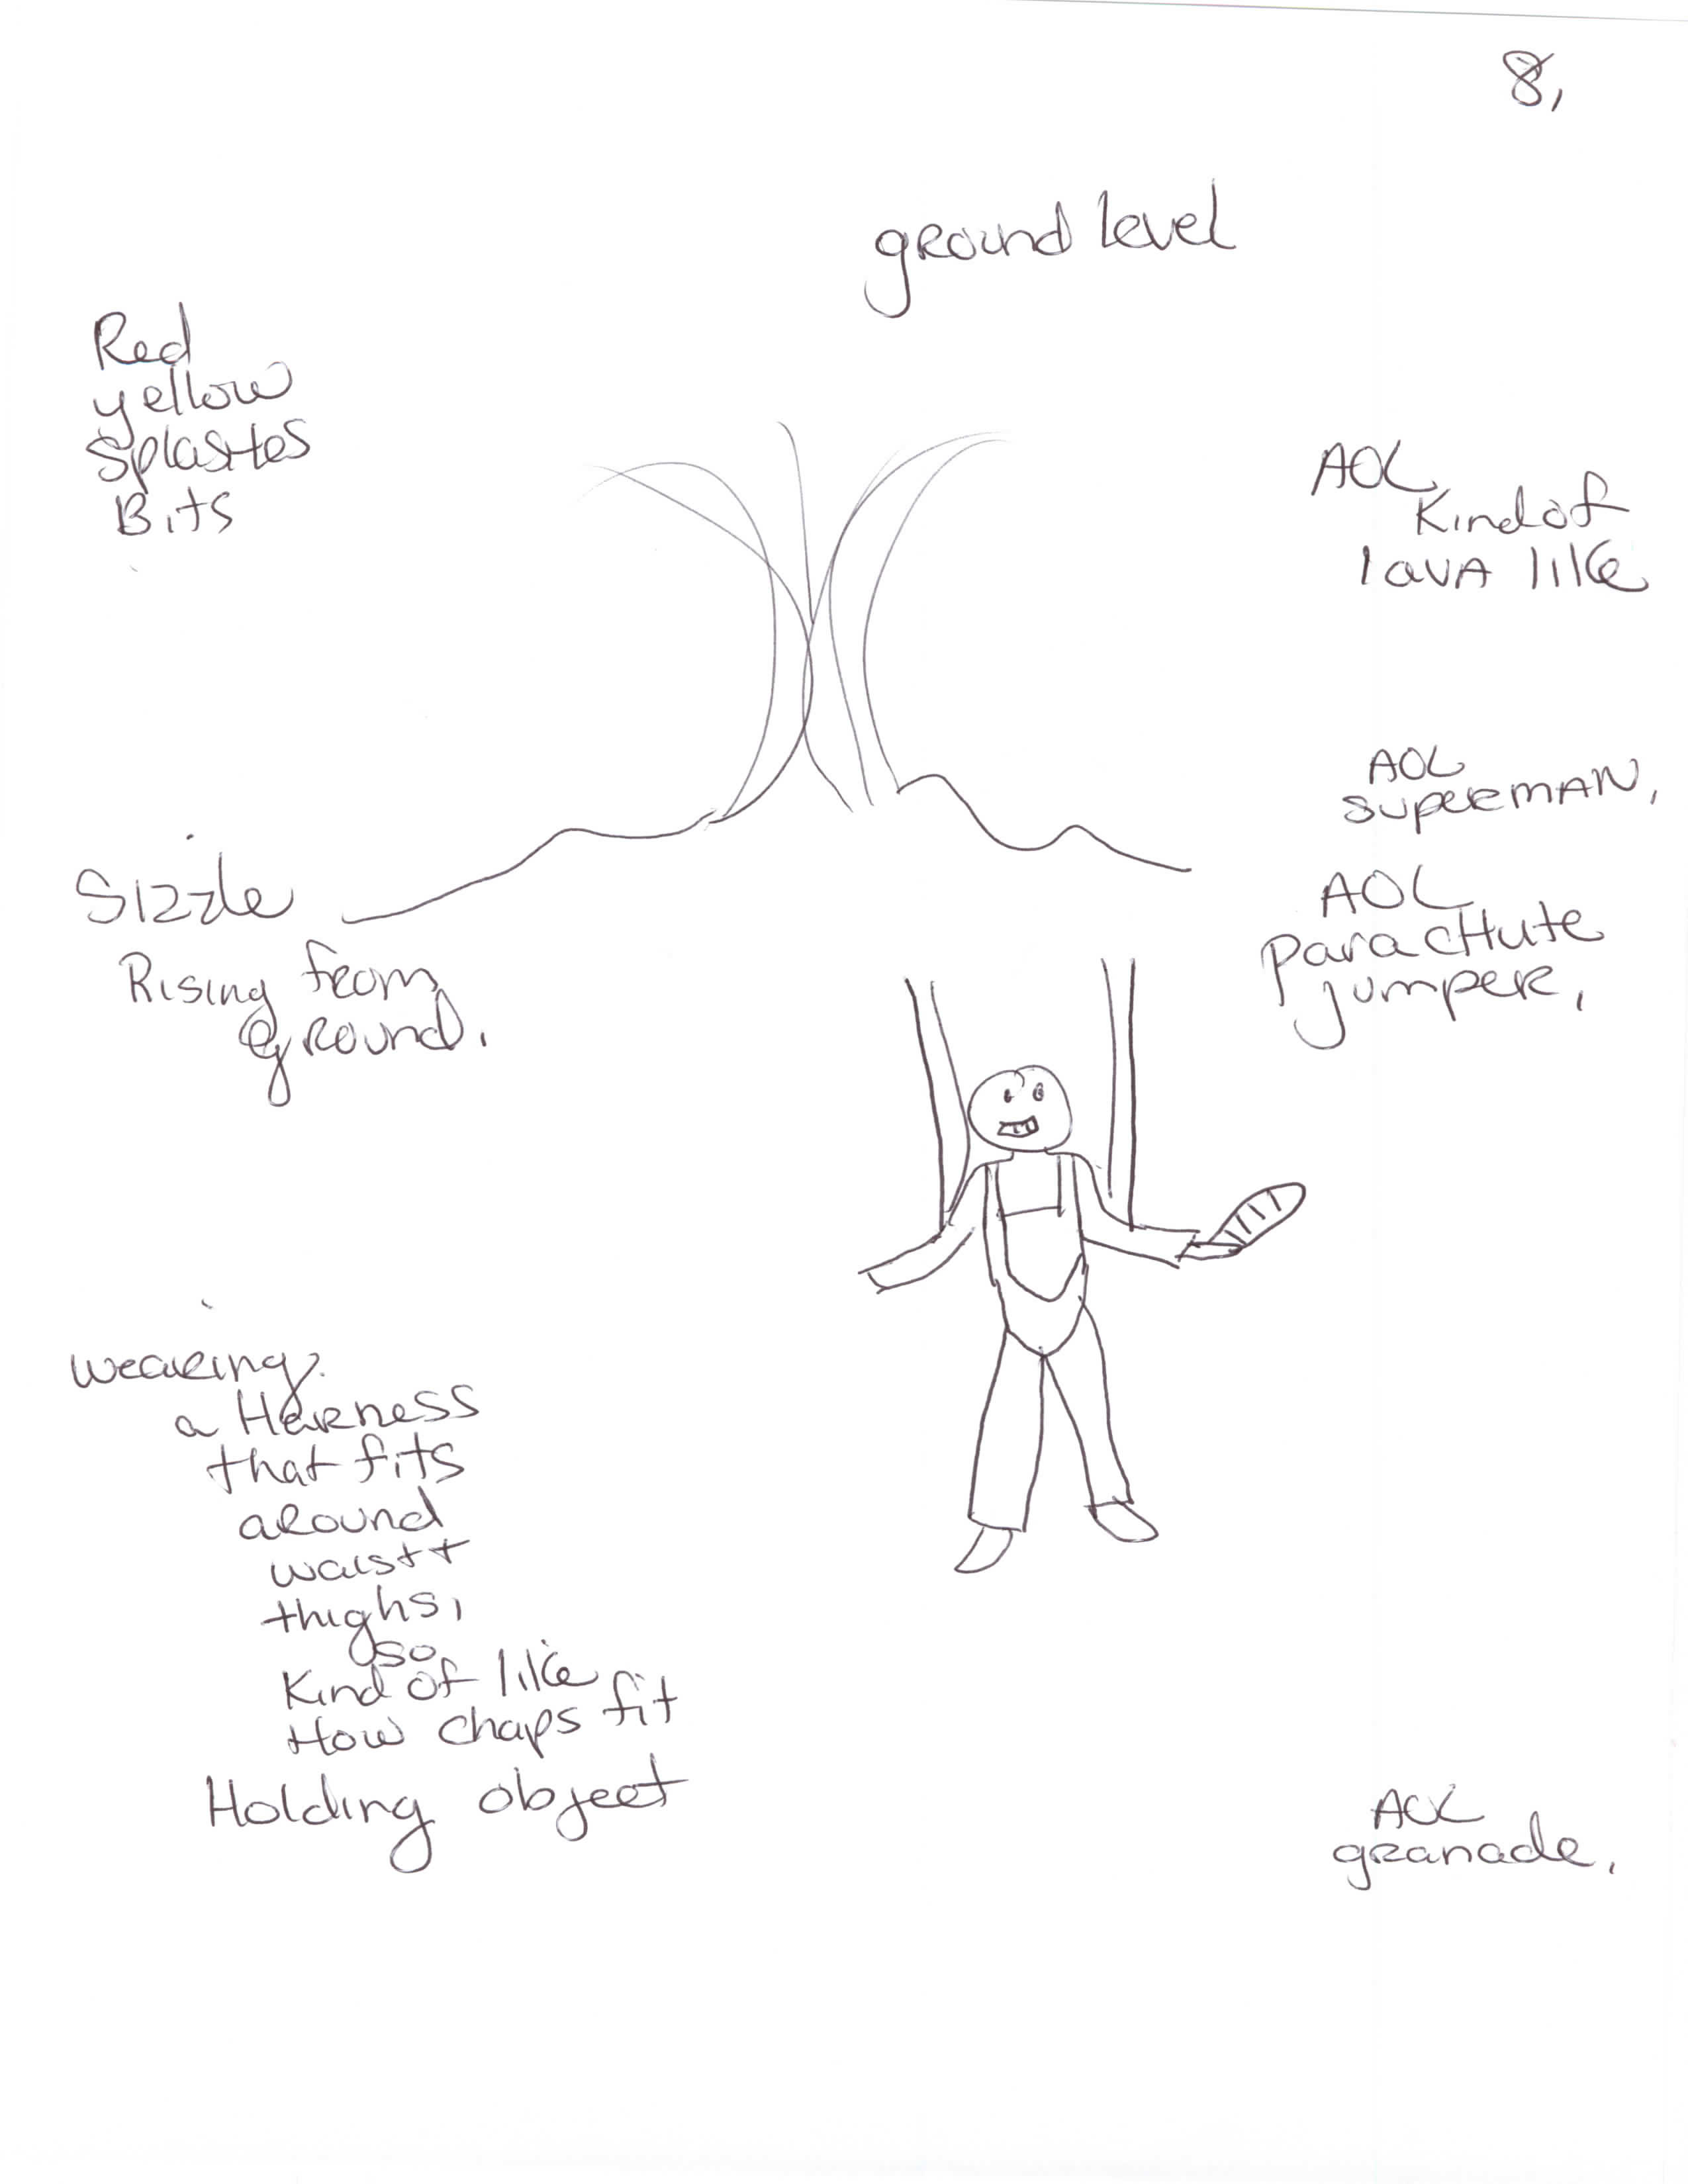 8,
ground level
Red
yellow
Splashes
Bits
AOL
Kind of
lava like
AOL
superman,
Sizzle
Rising from
ground.
AOL
parachute
jumper,
wearing.
a Harness
that fits
around
waist +
thighs,
so
Kind of like
How chaps fit
Holding object
AOL
granade,